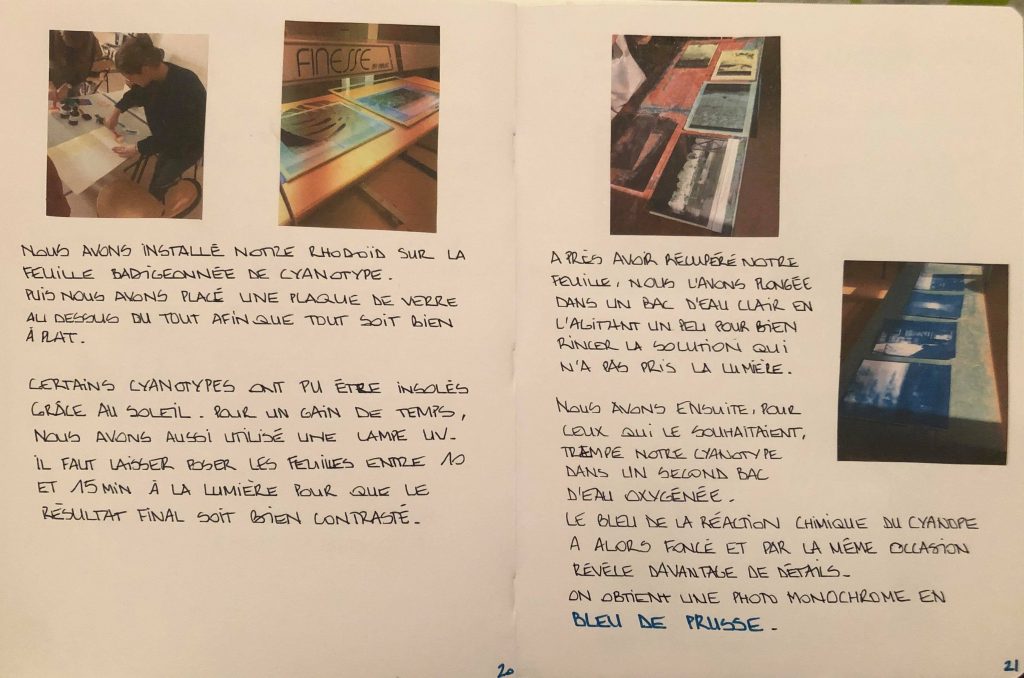 FINESSE
NOUS AVONS INSTALLÉ NOTRE RHODOÏD SUR LA
FEUILLE BADIGEONNÉE DE CYANOTYPE.
PUIS NOUS AVONS PLACÉ UNE PLAQUE DE VERRE
AU DESSUS DU TOUT AFIN QUE TOUT SOIT BIEN
À PLAT.
CERTAINS CYANOTYPES ONT PU ÊTRE INSOLÉS
GRÂCE AU SOLEIL. POUR UN GAIN DE TEMPS,
NOUS AVONS AUSSI UTILISÉ UNE LAMPE UV.
IL FAUT LAISSER POSER LES FEUILLES ENTRE 10
ET 15 MIN À LA LUMIÈRE POUR QUE LE
RÉSULTAT FINAL SOIT BIEN CONTRASTÉ.
20
APRÈS AVOIR RÉCUPÉRÉ NOTRE
FEUILLE, NOUS L'AVONS PLONGÉE
DANS UN BAC D'EAU CLAIR EN
L'AGITANT UN PEU POUR BIEN
RINCER LA SOLUTION QUI
N'A PAS PRIS LA LUMIÈRE.
NOUS AVONS ENSUITE, POUR
CEUX QUI LE SOUHAITAIENT,
TREMPÉ NOTRE CYANOTYPE
DANS UN SECOND BAC
D'EAU OXYGÉNÉE.
LE BLEU DE LA RÉACTION CHIMIQUE DU CYANOPE
A ALORS FONCÉ ET PAR LA MÊME OCCASION
RÉVÈLE DAVANTAGE DE DÉTAILS.
ON OBTIENT UNE PHOTO MONOCHROME EN
BLEU DE PRUSSE.
21